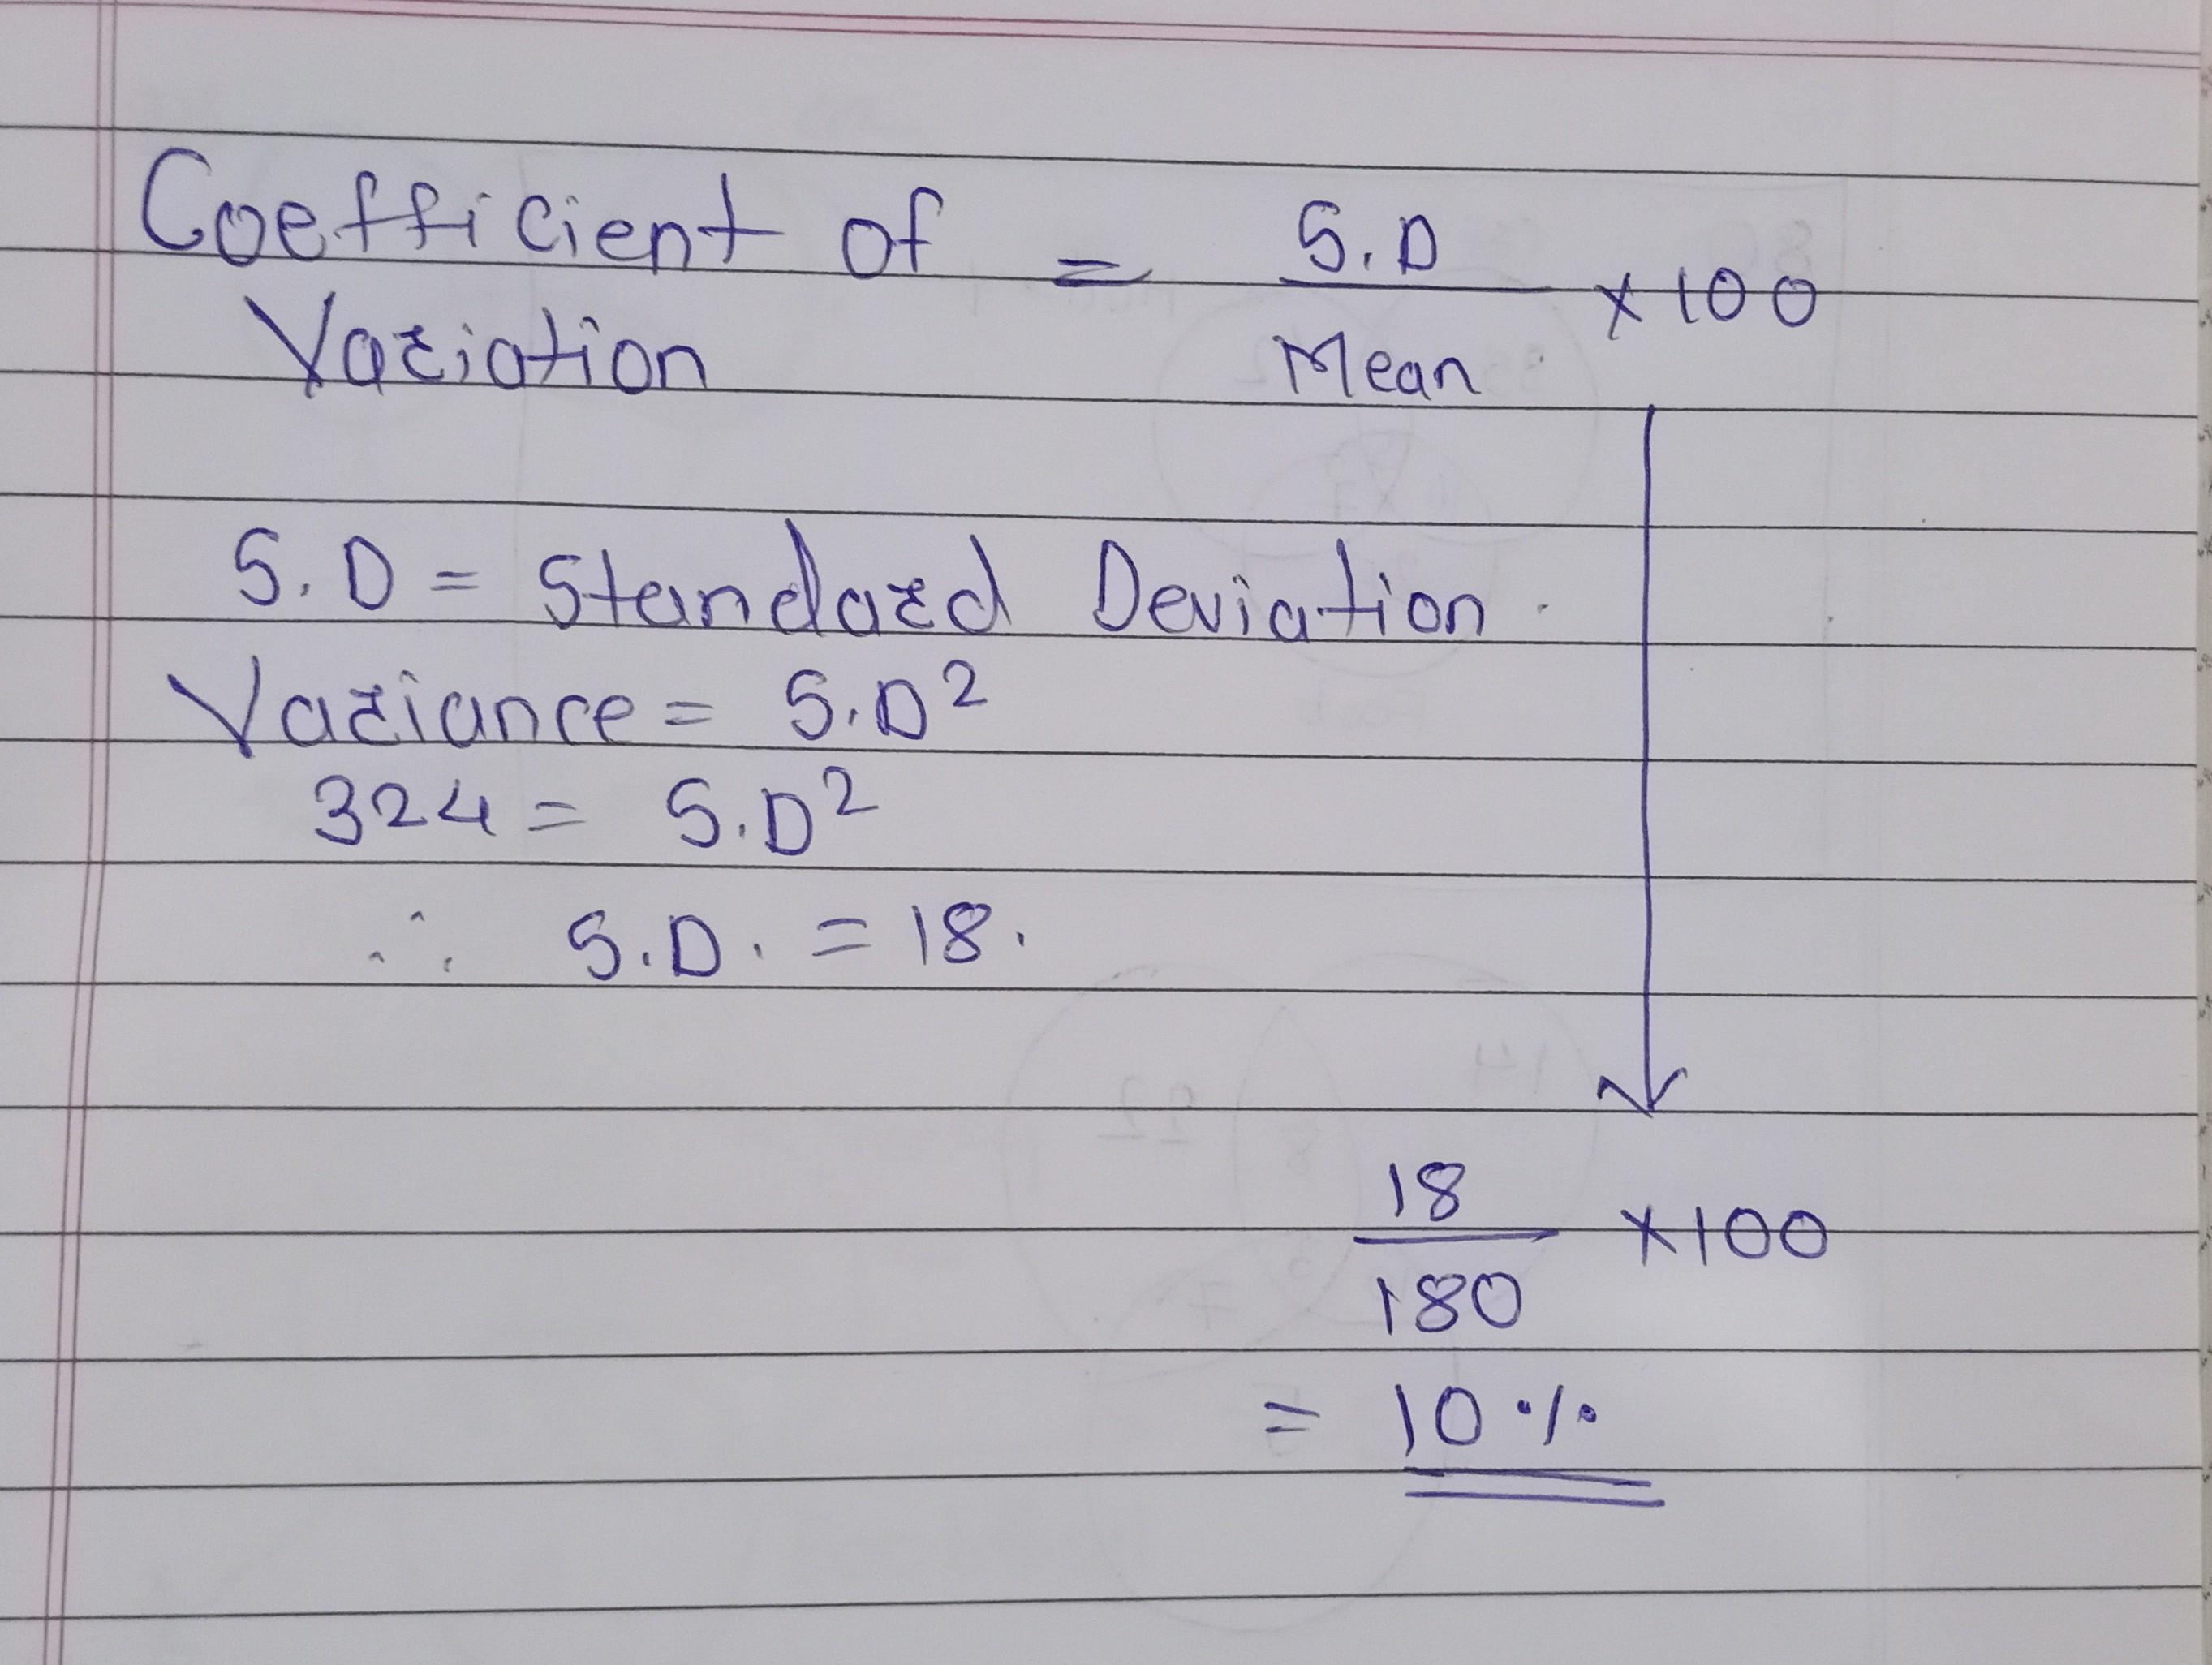 Coefficient of = S.D / Mean × 100
Variation
S.D = Standard Deviation.
Variance = S.D²
324 = S.D²
∴ S.D. = 18.
18 / 180 × 100
= 10 %